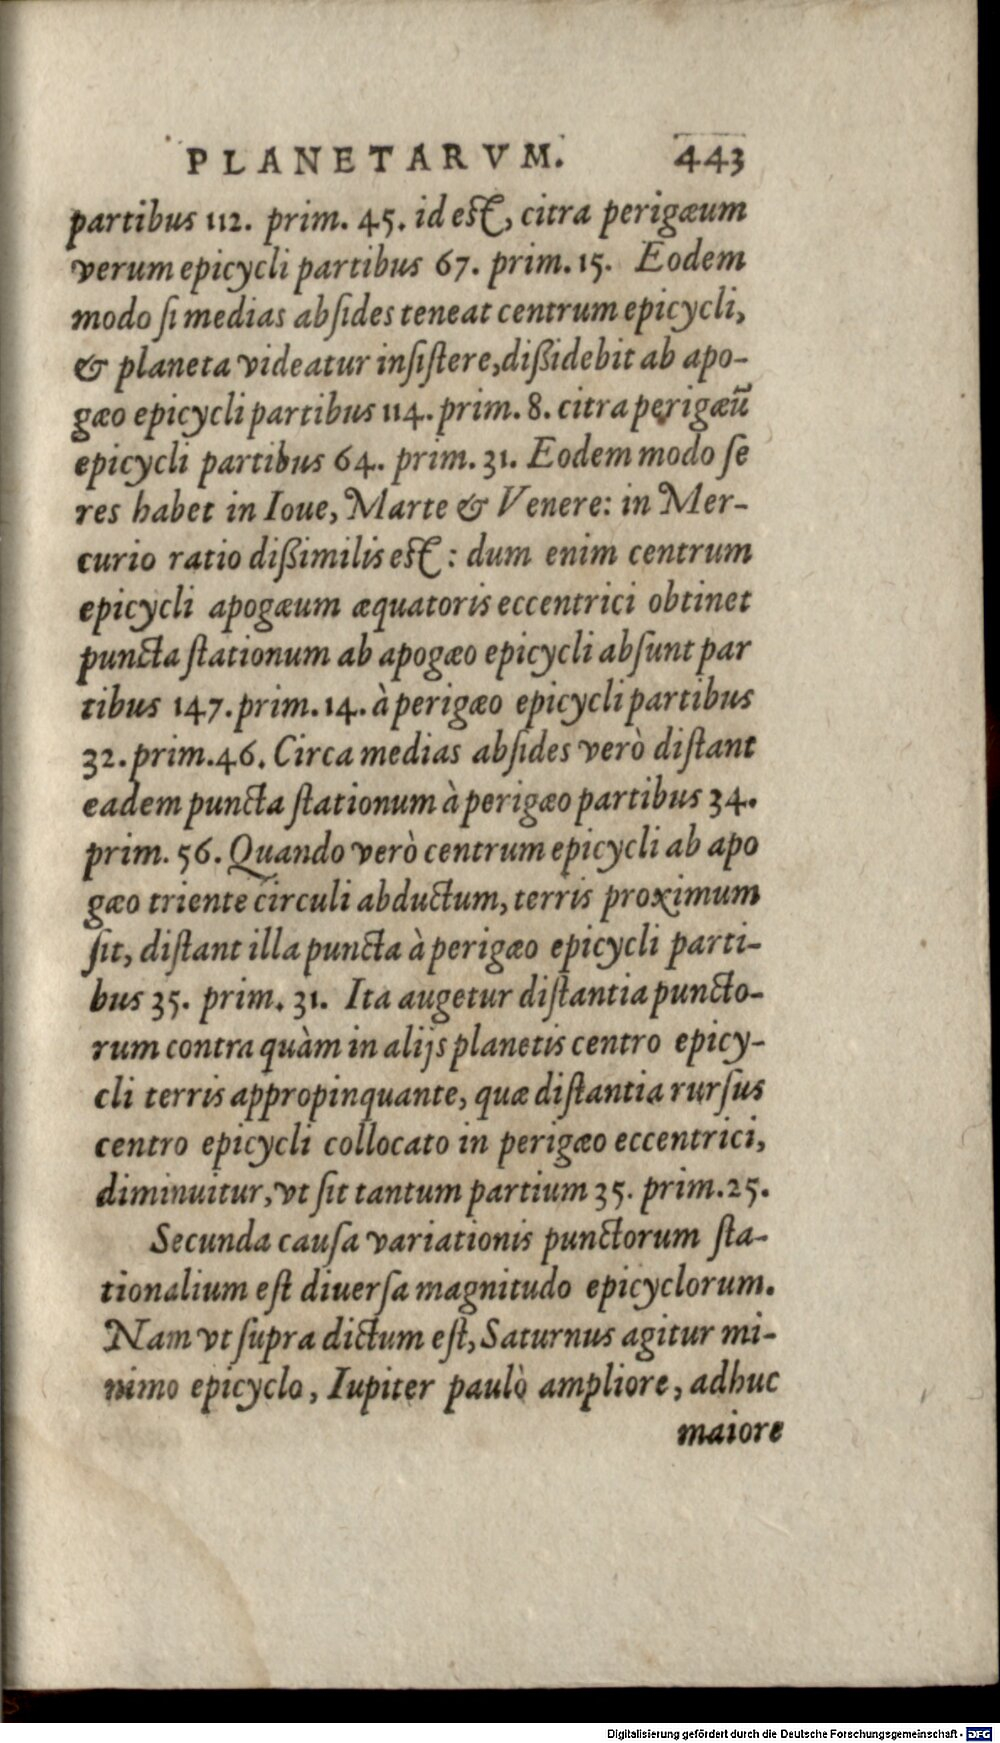 PLANETARVM. 443
partibus 112. prim. 45. id est, citra perigæum
verum epicycli partibus 67. prim. 15. Eodem
modo ſi medias abſides teneat centrum epicycli,
& planeta videatur inſiſtere, dißidebit ab apo-
gæo epicycli partibus 114. prim. 8. citra perigæū
epicycli partibus 64. prim. 31. Eodem modo ſe
res habet in Ioue, Marte & Venere: in Mer-
curio ratio dißimilis est: dum enim centrum
epicycli apogæum æquatoris eccentrici obtinet
puncta ſtationum ab apogæo epicycli abſunt par
tibus 147. prim. 14. à perigæo epicycli partibus
32. prim. 46. Circa medias abſides verò diſtant
eadem puncta ſtationum à perigæo partibus 34.
prim. 56. Quando verò centrum epicycli ab apo
gæo triente circuli abductum, terris proximum
ſit, diſtant illa puncta à perigæo epicycli parti-
bus 35. prim. 31. Ita augetur diſtantia puncto-
rum contra quàm in alijs planetis centro epicy-
cli terris appropinquante, quæ diſtantia rurſus
centro epicycli collocato in perigæo eccentrici,
diminuitur, vt ſit tantum partium 35. prim. 25.
Secunda cauſa variationis punctorum ſta-
tionalium eſt diuerſa magnitudo epicyclorum.
Nam vt ſupra dictum eſt, Saturnus agitur mi-
nimo epicyclo, Iupiter paulò ampliore, adhuc
maiore
Digitalisierung gefördert durch die Deutsche Forschungsgemeinschaft - DFG